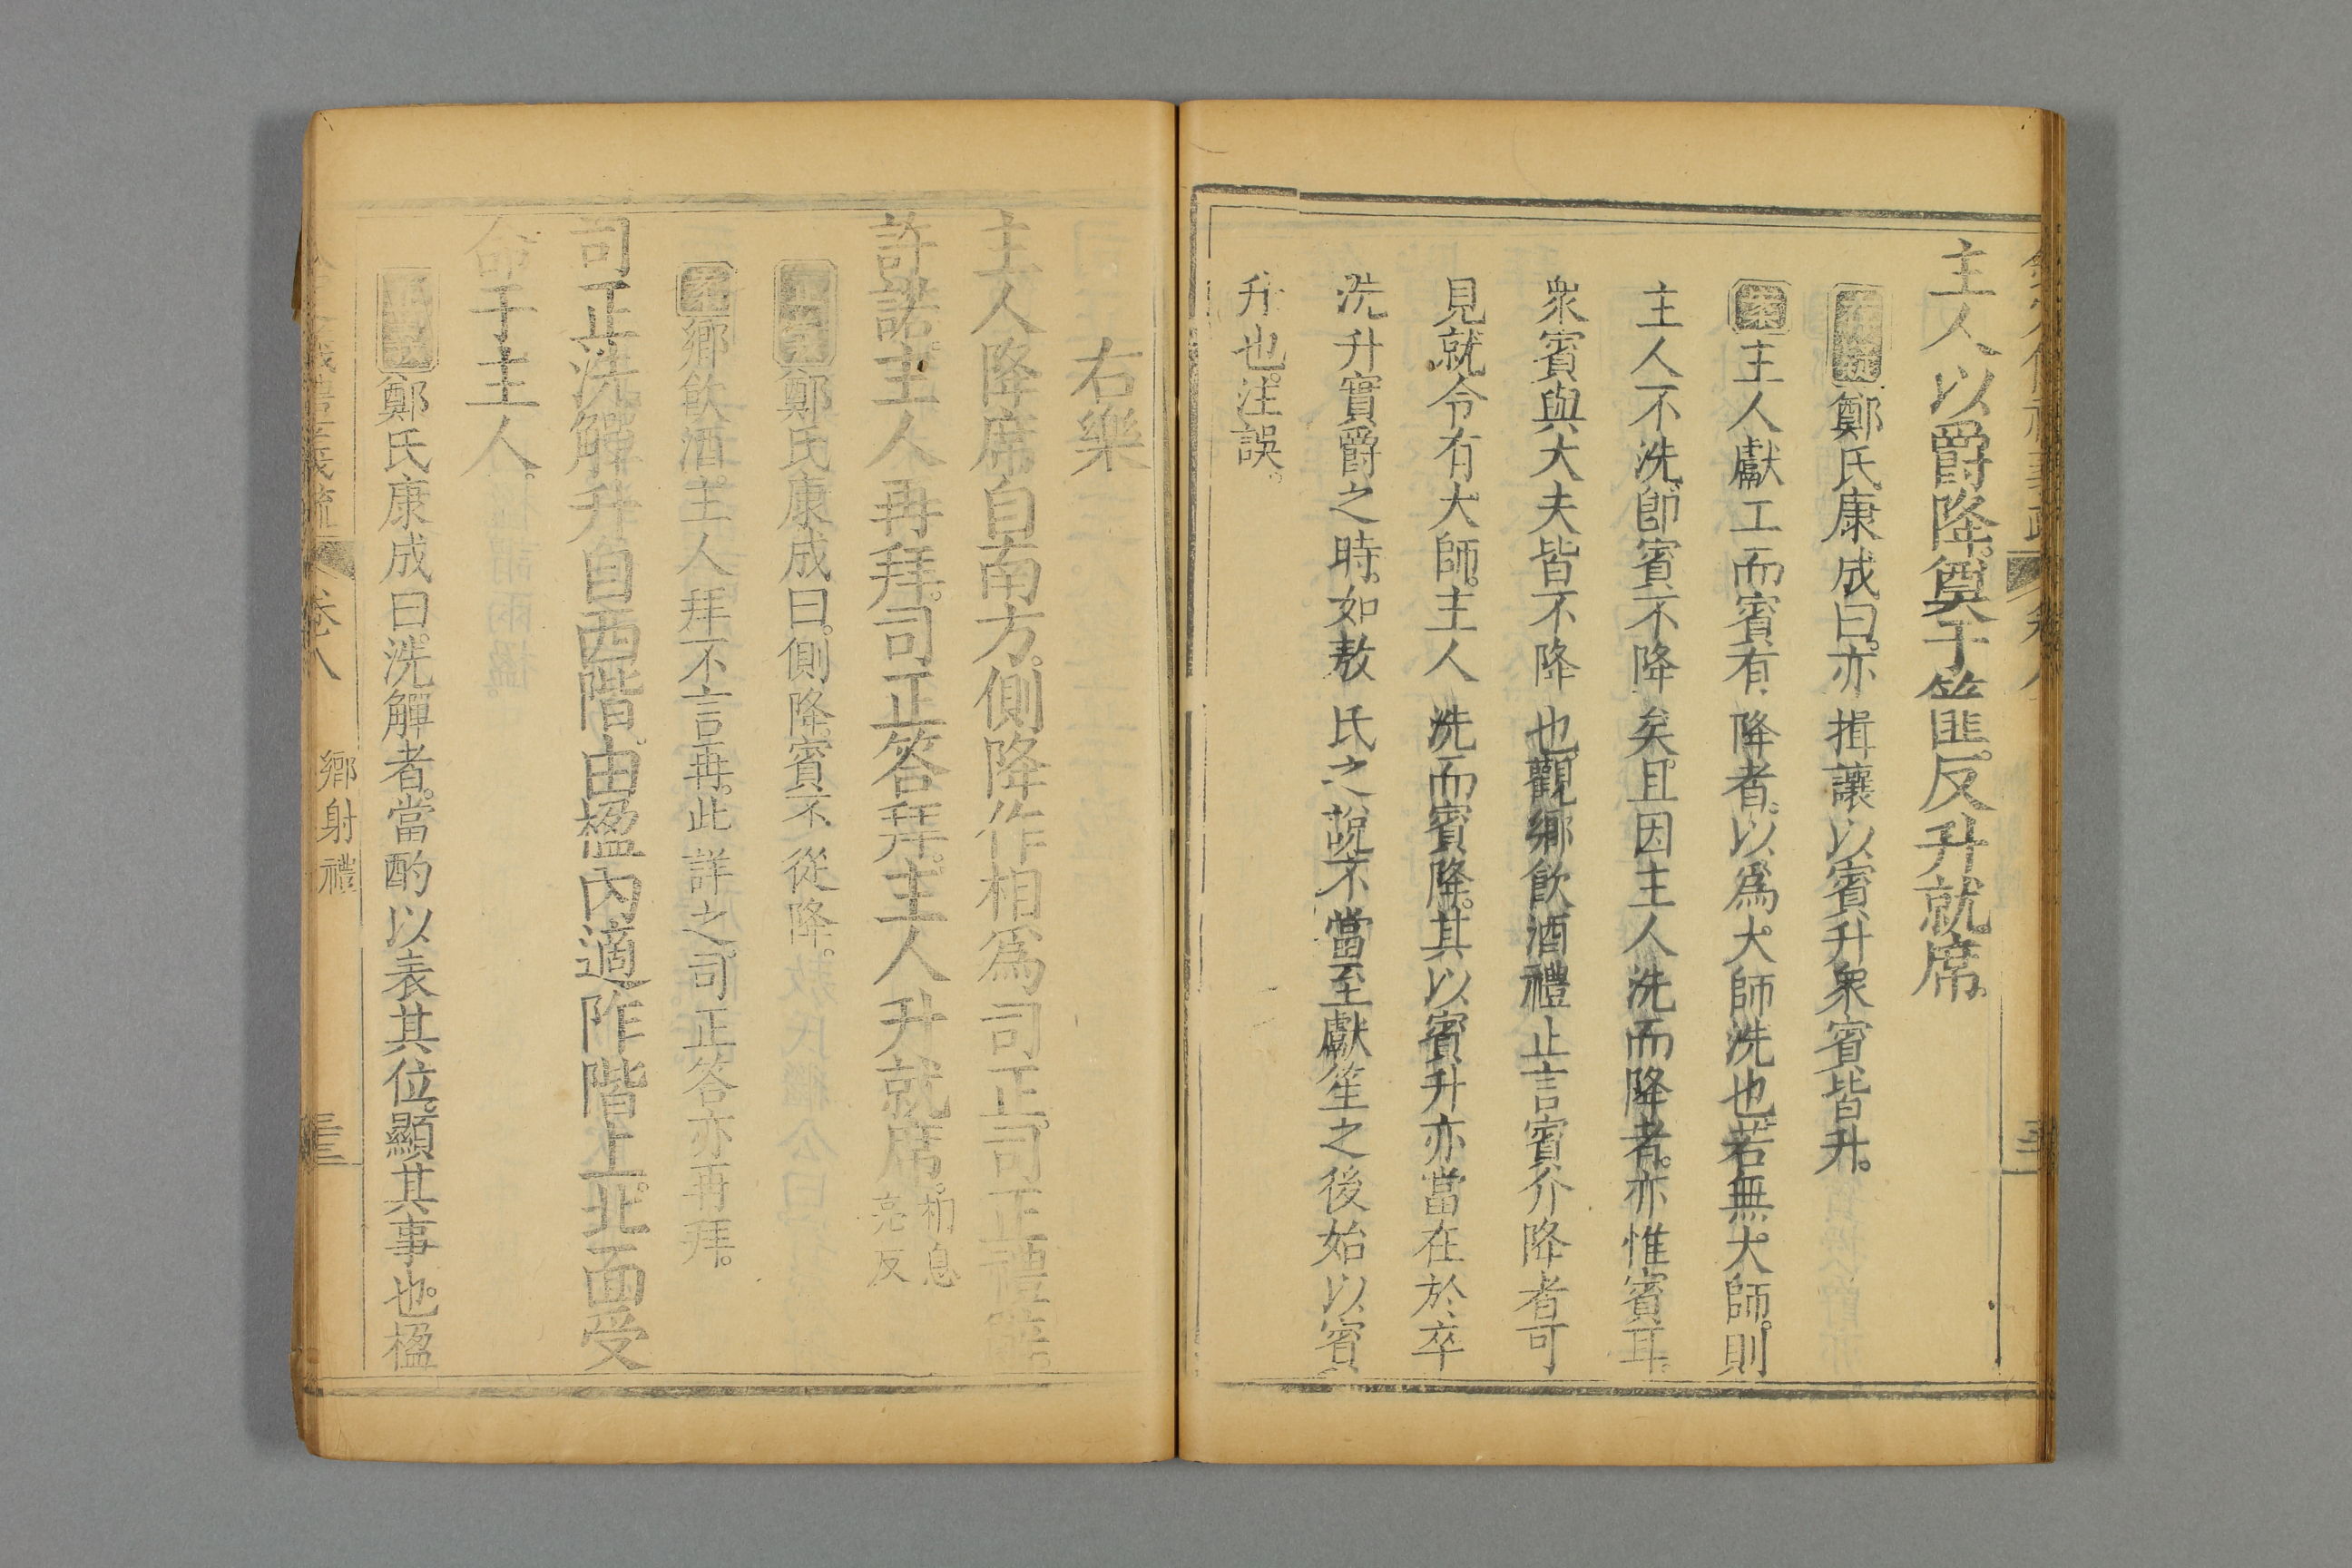 主人以爵降。奠于篚。反升就席。
存疑鄭氏康成曰。亦揖讓以賓升衆賓皆升。
案主人獻工而賓有降者。以爲大師洗也。若無大師。則
主人不洗。卽賓不降矣。且因主人洗而降者。亦惟賓耳。
衆賓與大夫皆不降也。觀鄉飮酒禮止言賓介降者可
見就令有大師。主人洗而賓降。其以賓升亦當在於卒
洗升實爵之時。如敖氏之說不當至獻笙之後始以賓
升也。注誤。
右樂
主人降席自南方。側降作相爲司正。司正禮辭。
許諾。主人再拜。司正答拜。主人升就席。相息亮反
正義鄭氏康成曰。側降賓不從降。
案鄉飮酒。主人拜不言再。此詳之。司正答亦再拜。
司正洗觶升自西階。由楹內適阼階上。北面受
命于主人。
正義鄭氏康成曰。洗觶者。當酌以表其位。顯其事也。楹
儀禮義疏 卷八 鄉射禮